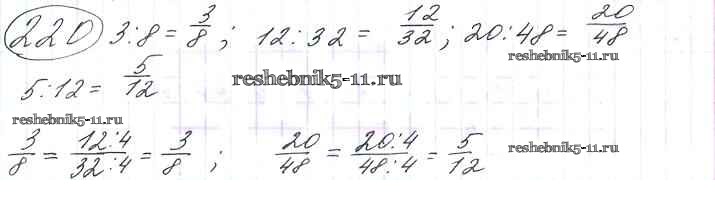 220 3:8 = 3/8 ; 12:32 = 12/32 ; 20:48 = 20/48
reshebnik5-11.ru
5:12 = 5/12
reshebnik5-11.ru
reshebnik5-11.ru
3/8 = 12:4/32:4 = 3/8 ; 20/48 = 20:4/48:4 = 5/12
reshebnik5-11.ru